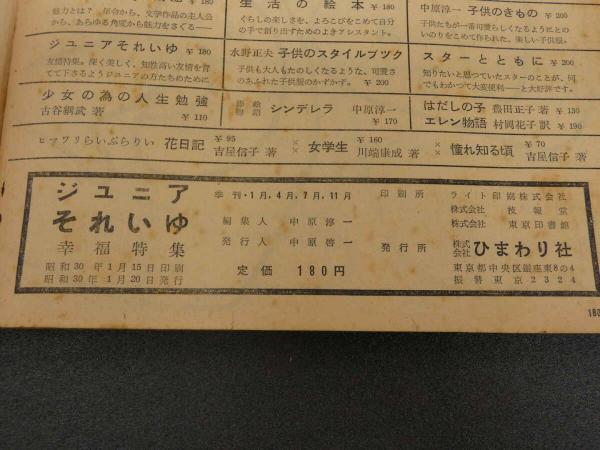 ¥180
生活の絵本
中原淳一 子供のきもの ¥200
魅力とは? 年令から、文学作品の主人公から、あらゆる角度から魅力をさぐる——
ぐらしの楽しさを、よろこびをこめて自分の手で創り出すためのよきアシスタント。
子供たちが一番可愛らしくなるようにとのいのりをこめて作られた、楽しい子供服。
ジュニアそれいゆ ¥180
友情特集。深く美しく、知性高い友情を育てて下さるようジュニアの方たちのために
水野正夫 子供のスタイルブック
子供も大人もたのしくなるような、可愛さのあふれた子供服のかずかず。 ¥200
スターとともに ¥200
知りたいと思っていたスターのことが、何でもわかつて大変便利——と大好評です。
少女の為の人生勉強
古谷綱武 著 ¥110
シンデレラ 中原淳一
¥170
はだしの子 豊田正子 著 ¥130
エレン物語 村岡花子 訳 ¥190
ヒマワリらいぶらりい 花日記 ¥95 吉屋信子 著 × 女学生 ¥160 川端康成 著 × 憧れ知る頃 ¥70 吉屋信子 著
ジュニア
それいゆ
幸福特集
昭和30年1月15日印刷
昭和30年1月20日発行
季刊・1月,4月,7月,11月
編集人 中原淳一
発行人 中原啓一
定価 180円
印刷所 ライト印刷株式会社
株式会社 技報堂
株式会社 東京印書館
発行所 株式会社 ひまわり社
東京都中央区銀座東8の4
振替東京2324
180